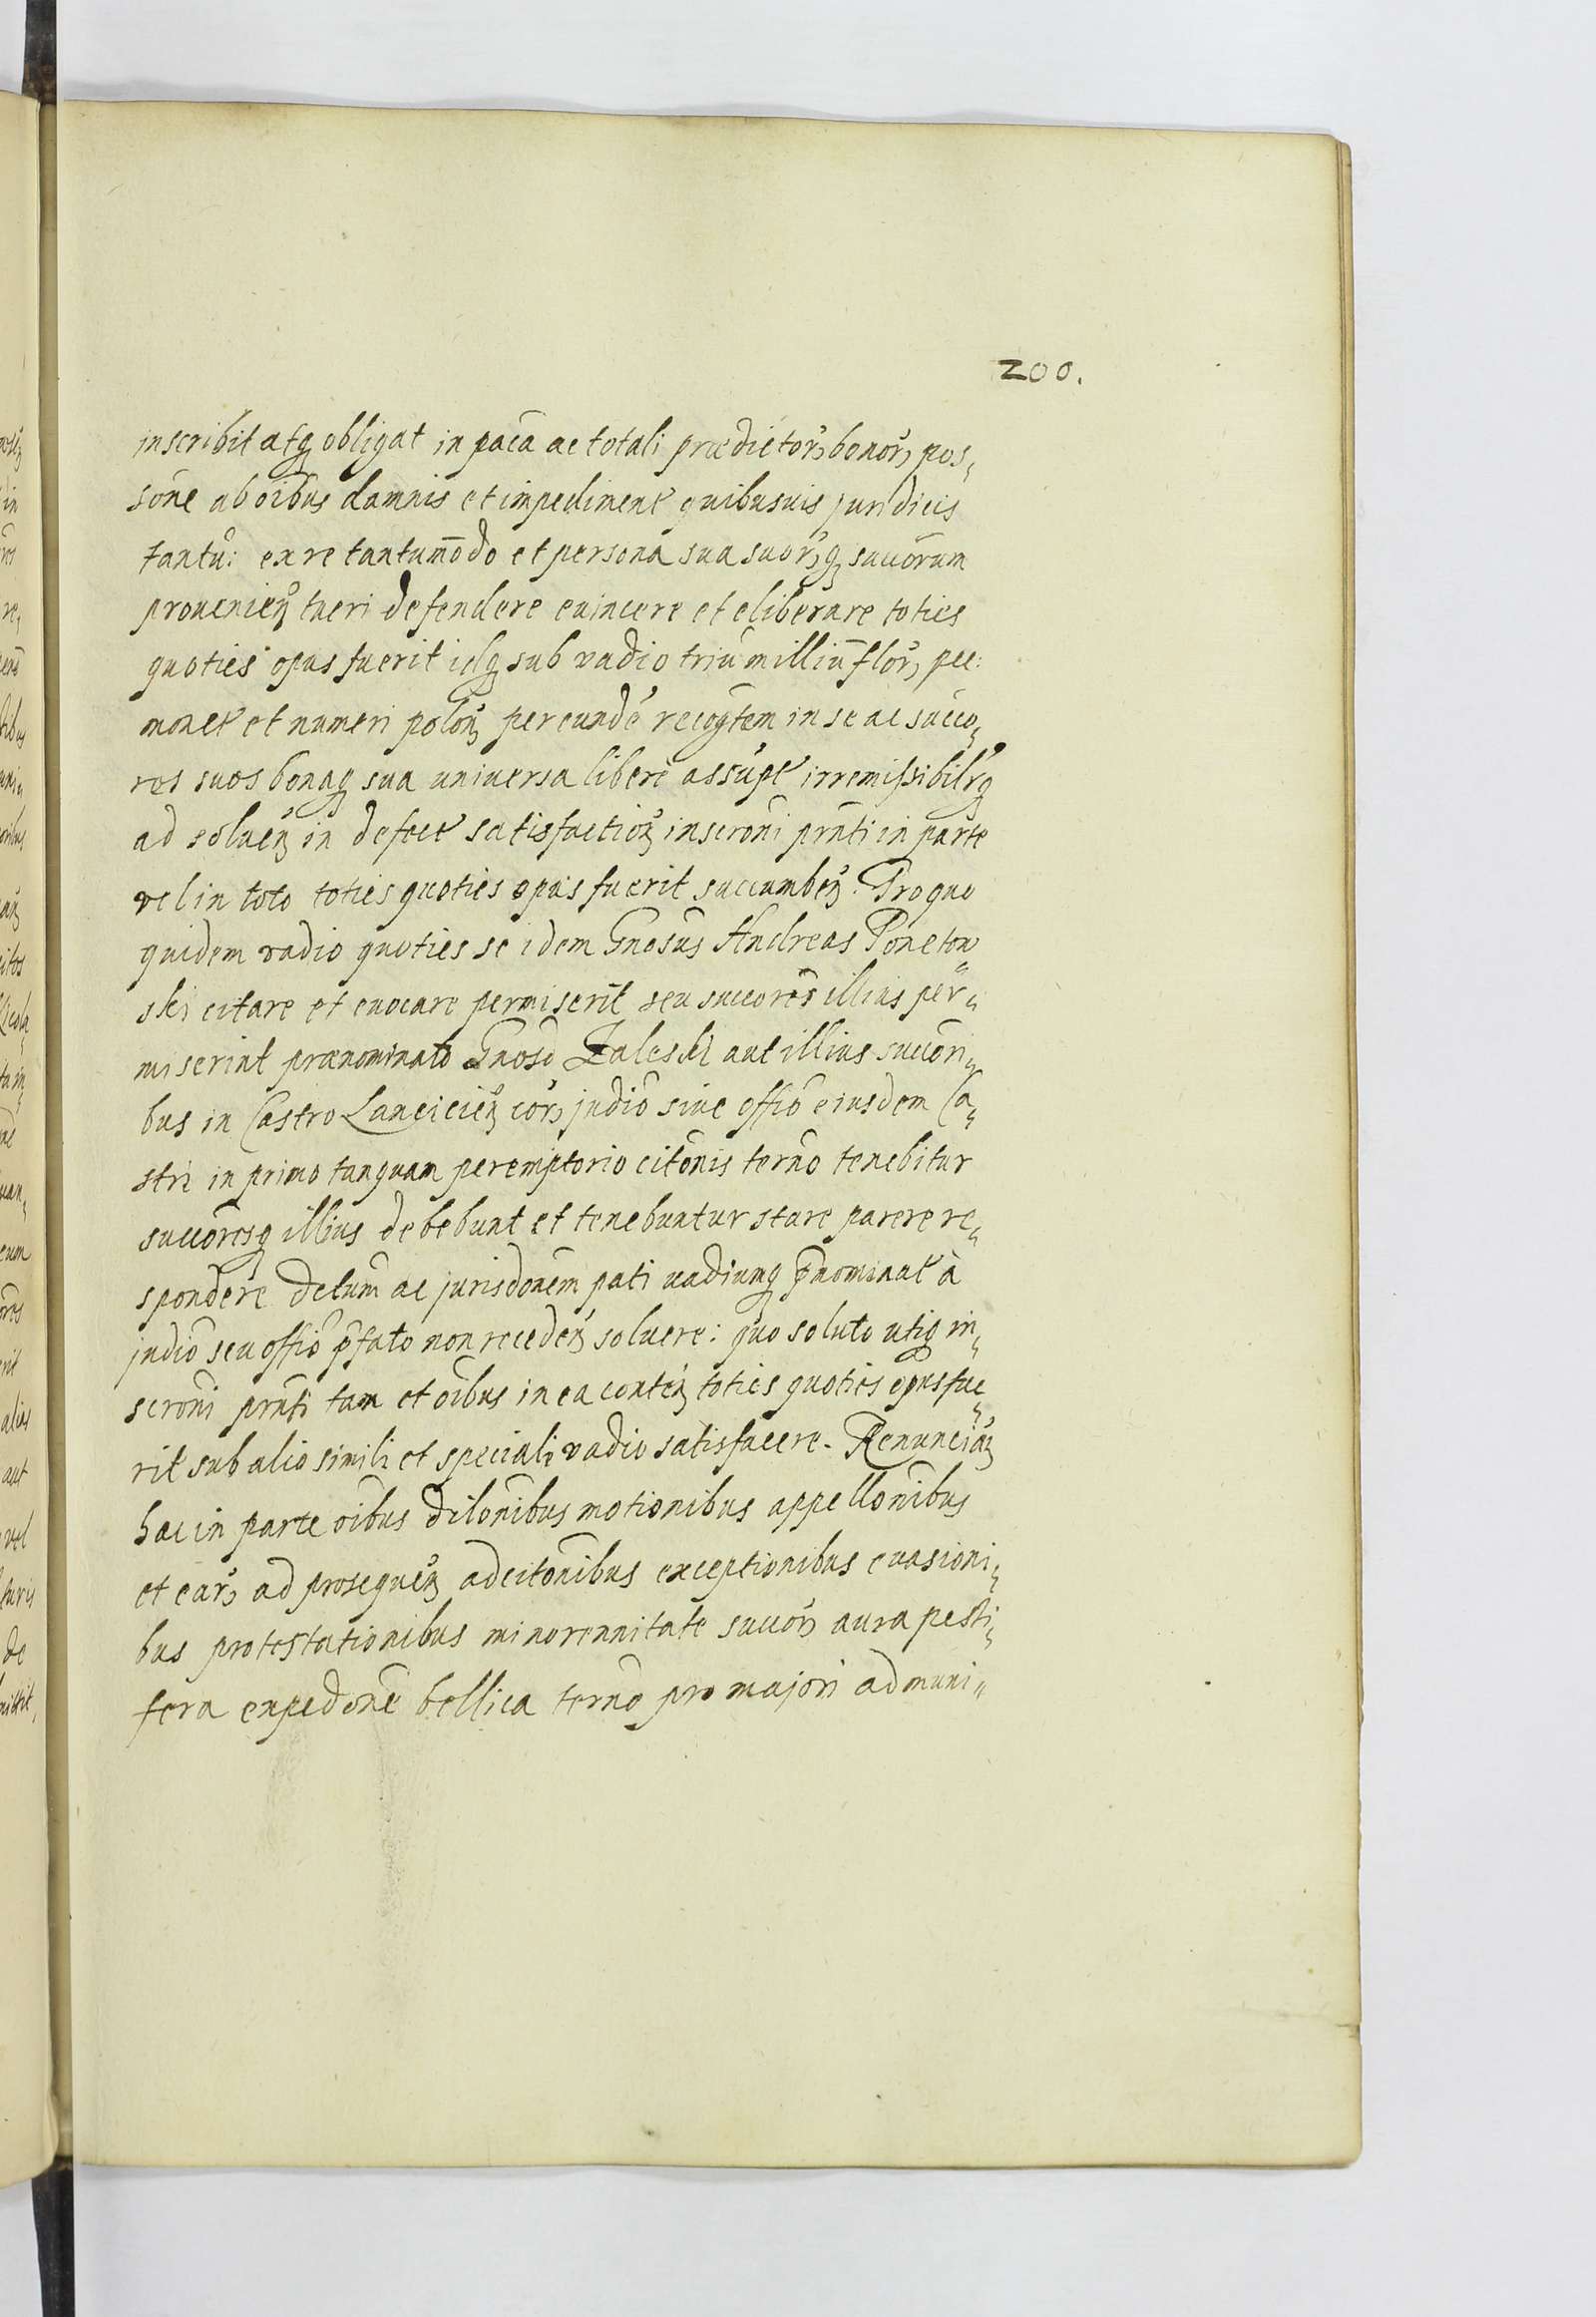 200.
inscribit atq obligat in paca ac totali prædictor, bonor, pos„
sone ab oibus damnis et impediment quibusuis juridicis
tantu: ex re tantummodo et persona sua suor,q succorum
prouenien tueri defendere euincere et eliberare toties
quoties opus fuerit idq sub vadio triu milliu flor, pec:
monet et numeri polon per eunde recogtem in se ac succo„
res suos bonaq sua uniuersa libere assupt irremissibilrq
ad soluen in defect satisfaction inscroni prnti in parte
vel in toto toties quoties opus fuerit succumben. Pro quo
quidem vadio quoties se idem Gnosus Andreas Ponetow„
ski citare et euocare permiserit seu succores illius per„
miserint prænominato Gnoso Zaleski aut illius succori„
bus in Castro Lancicien cor, judio siue offio eiusdem Ca„
stri in primo tanquam peremptorio citonis terno tenebitur
succoresq illius debebunt et tenebuntur stare parere re„
spondere detum ac jurisdonem pati uadiumq pnominat à
judio seu offio pfato non receden soluere: quo soluto utiq in„
scroni prnti tam et oibus in ea conten toties quoties opus fue„
rit sub alio simili et speciali vadio satisfacere. Renuncian
hac in parte oibus dilonibus motionibus appellonibus
et ear, ad prosequen adcitonibus exceptionibus euasioni„
bus protestationibus minorennitate succor, aura pesti„
fera expedone bellica terno pro majori ad muni„